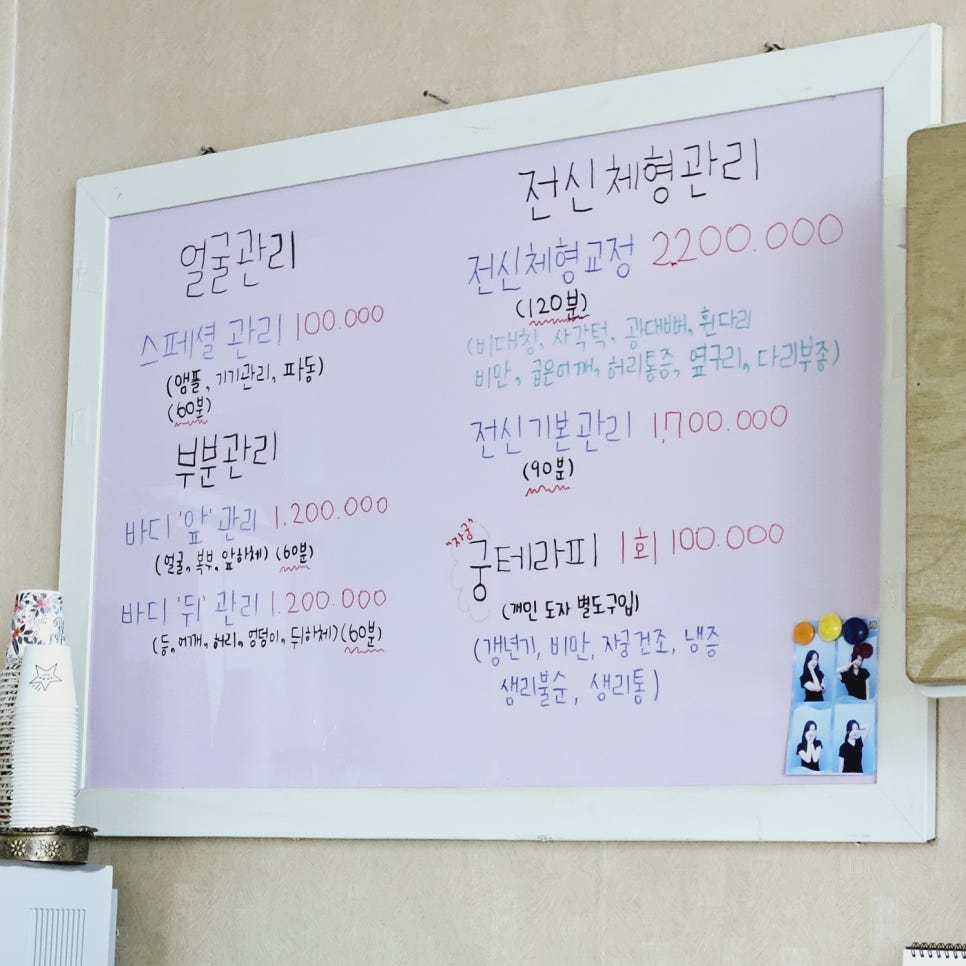 얼굴관리
스페셜 관리 100.000
(앰플, 기기관리, 파동)
(60분)
부분관리
바디 '앞' 관리 1.200.000
(얼굴, 복부, 앞하체) (60분)
바디 '뒤' 관리 1.200.000
(등, 어깨, 허리, 엉덩이, 뒤하체) (60분)
전신체형관리
전신체형교정 2.200.000
(120분)
(비대칭, 사각턱, 광대뼈, 휜다리
비만, 굽은어깨, 허리통증, 옆구리, 다리부종)
전신기본관리 1,700.000
(90분)
"자궁"
궁테라피 1회 100.000
(개인 도자 별도구입)
(갱년기, 비만, 자궁건조, 냉증
생리불순, 생리통)